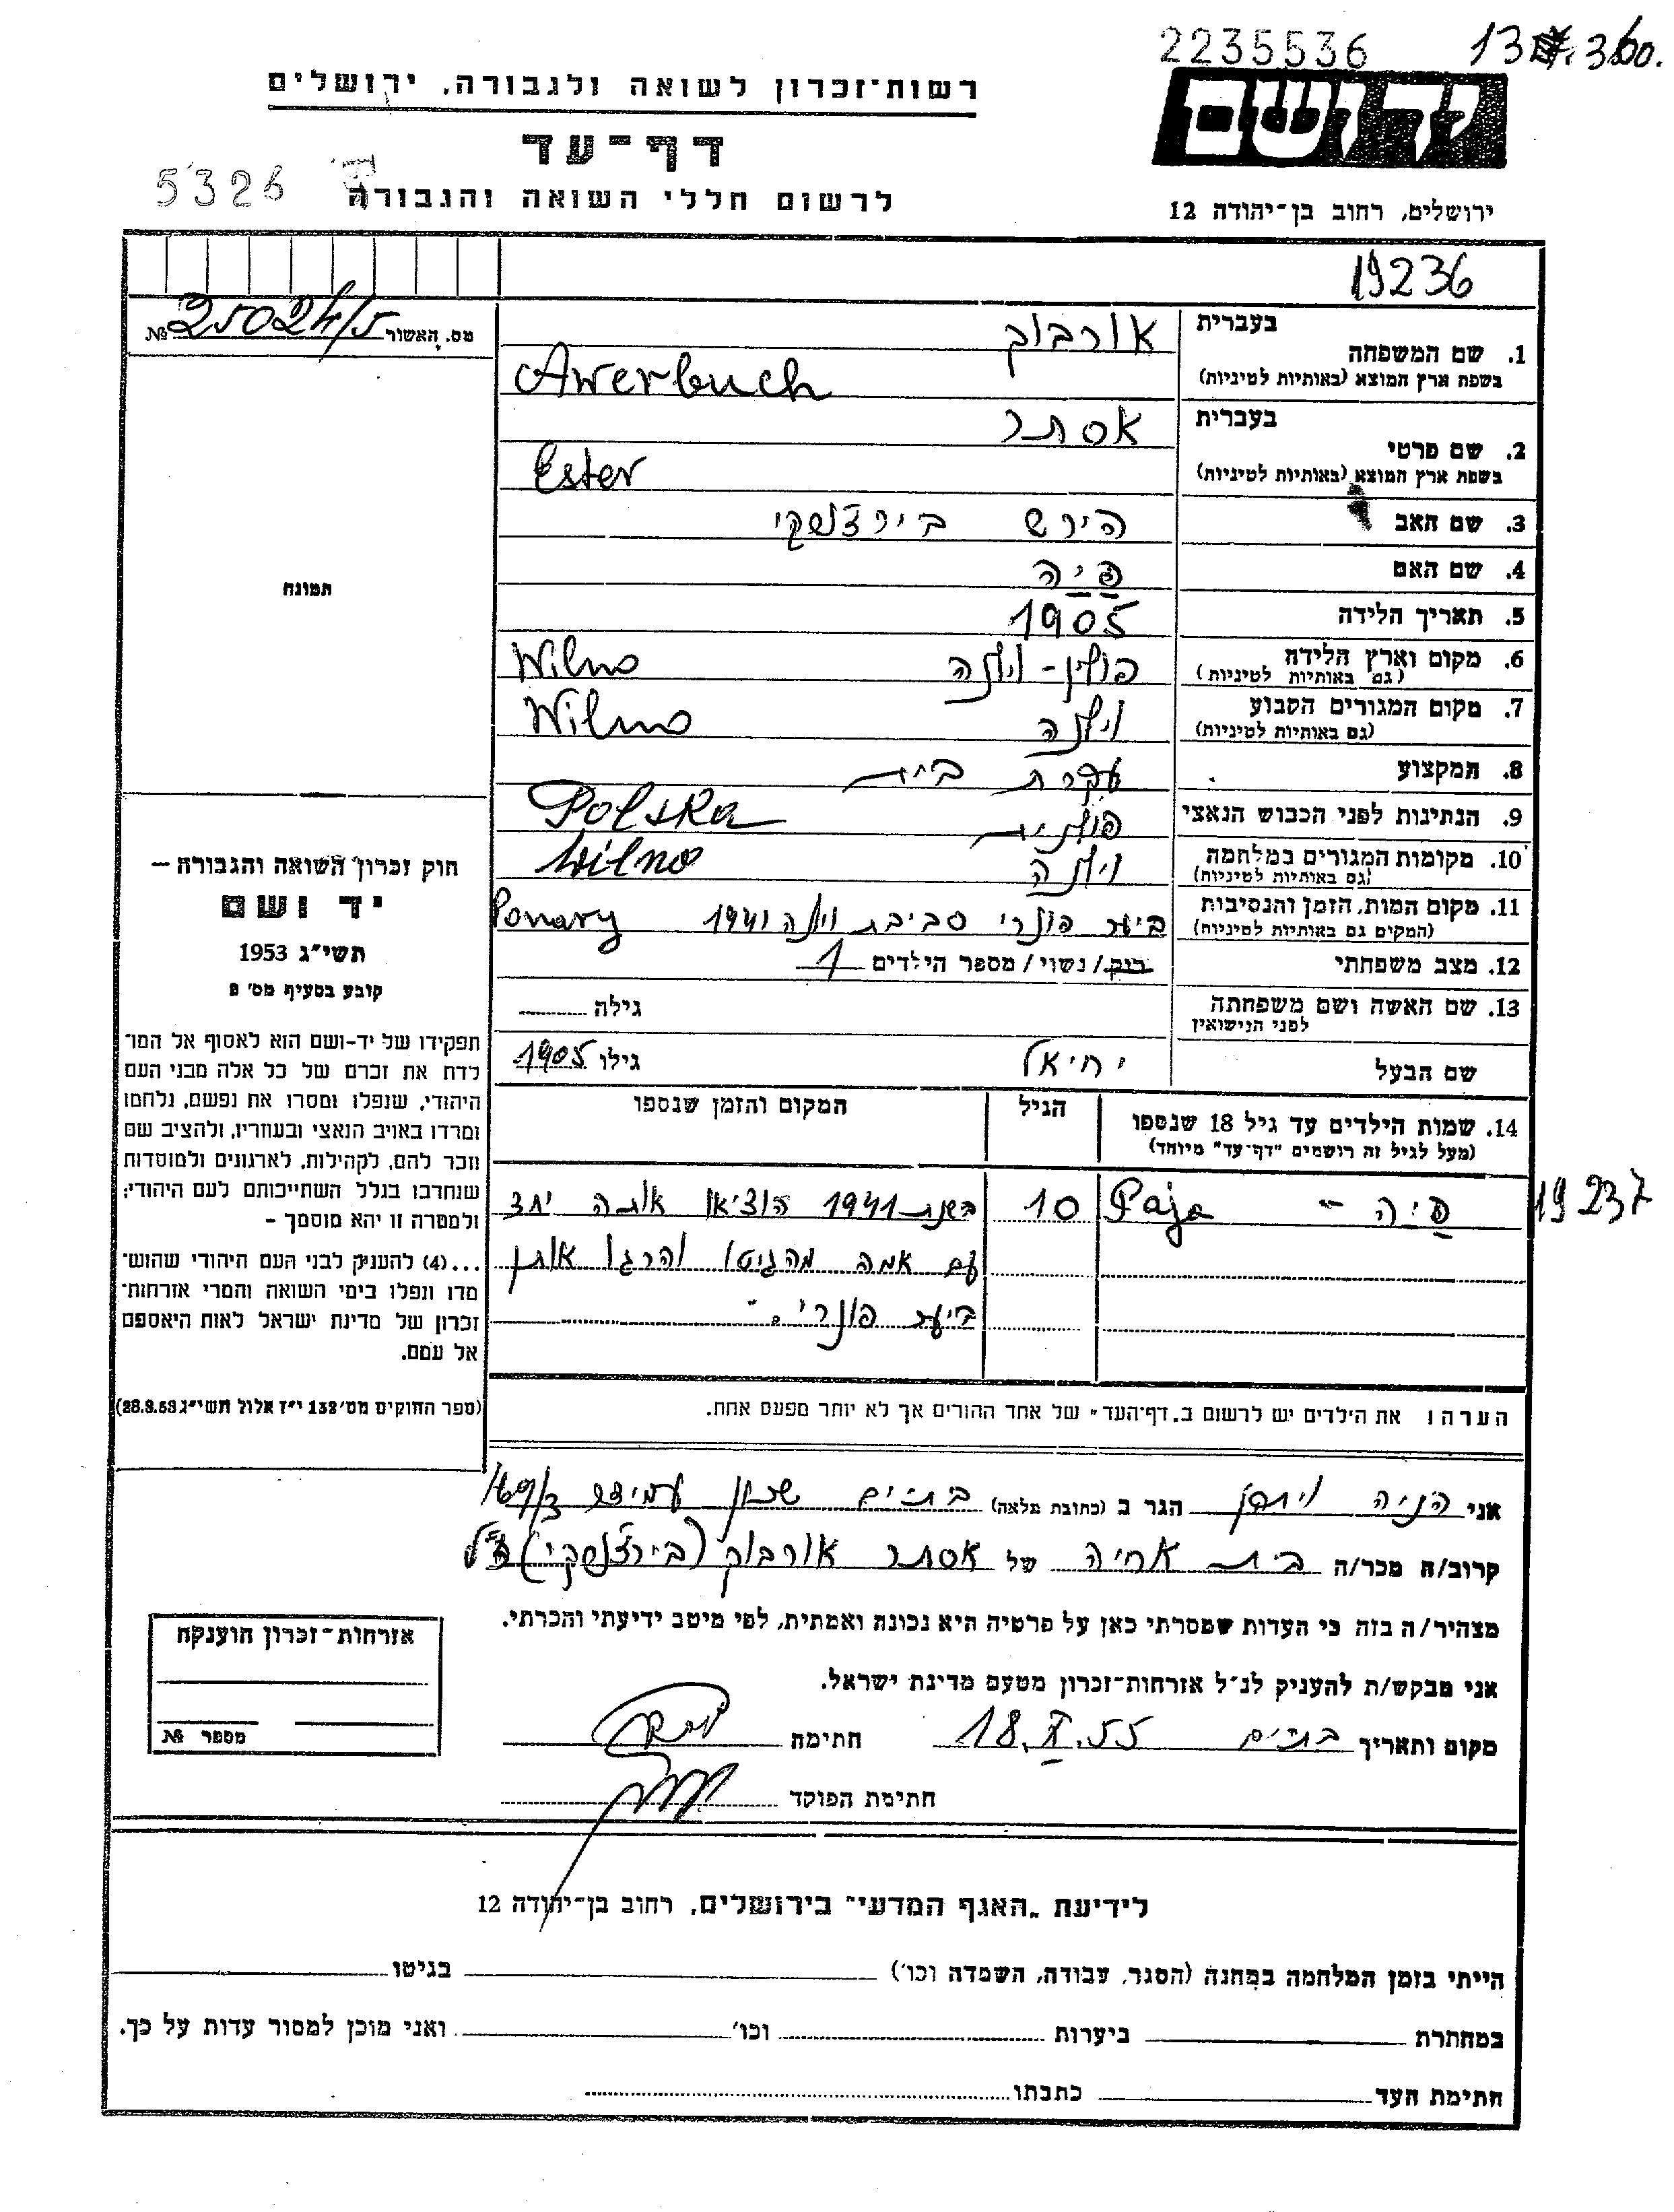 2235536
13 .360.
רשות־זכרון לשואה ולגבורה, ירושלים
ידושם
דף־עד
5326
לרשום חללי השואה והגבורה
ירושלים, רחוב בן־יהודה 12
19236
מס. האשור № 25024/5
בעברית אורבוך
1. שם המשפחה
בשפת ארץ המוצא (באותיות לטיניות) Awerbuch
בעברית אסתר
2. שם פרטי
בשפת ארץ המוצא (באותיות לטיניות) Ester
3. שם האב הירש בירצ'נסקי
4. שם האם פיה
5. תאריך הלידה 1905
6. מקום וארץ הלידה פולין - וילנה Wilno
(גם באותיות לטיניות)
7. מקום המגורים הקבוע וילנה Wilno
(גם באותיות לטיניות)
8. המקצוע עקרת בית
9. הנתינות לפני הכבוש הנאצי פולנית Polska
10. מקומות המגורים במלחמה וילנה Wilno
(גם באותיות לטיניות)
11. מקום המות, הזמן והנסיבות ביער פונרי סביבת וילנה 1941 Ponary
(המקום גם באותיות לטיניות)
12. מצב משפחתי רוק / נשוי / מספר הילדים 1
13. שם האשה ושם משפחתה גילה
לפני הנישואין
שם הבעל יחיאל גילו 1905
14. שמות הילדים עד גיל 18 שנספו הגיל המקום והזמן שנספו
(מעל לגיל זה רושמים "דף־עד" מיוחד)
פיה - Paja 10 בשנת 1941 הוציאו אותה יחד
19237
עם אמה מהגיטו והרגו אותן
ביער פונרי.
תמונה
חוק זכרון השואה והגבורה —
יד ושם
תשי״ג 1953
קובע בסעיף מס׳ 2
תפקידו של יד-ושם הוא לאסוף אל המו־
לדת את זכרם של כל אלה מבני העם
היהודי, שנפלו ומסרו את נפשם, נלחמו
ומרדו באויב הנאצי ובעוזריו, ולהציב שם
וזכר להם, לקהילות, לארגונים ולמוסדות
שנחרבו בגלל השתייכותם לעם היהודי;
ולמטרה זו יהא מוסמך -
...(4) להעניק לבני העם היהודי שהוש־
מדו ונפלו בימי השואה והמרי אזרחות־
זכרון של מדינת ישראל לאות היאספם
אל עמם.
(ספר החוקים מס׳ 132 י״ז אלול תשי״ג 28.8.53)
הערה: את הילדים יש לרשום ב„דף־העד״ של אחד ההורים אך לא יותר מפעם אחת.
אני הניה הגר ב (כתובת מלאה) בת־ים שכון עמידר
קרוב/ה מכר/ה בת אחיה של אסתר אורבוך (בירצ'נסקי) ז״ל
מצהיר/ה בזה כי העדות שמסרתי כאן על פרטיה היא נכונה ואמתית, לפי מיטב ידיעתי והכרתי.
אני מבקש/ת להעניק לנ״ל אזרחות־זכרון מטעם מדינת ישראל.
מקום ותאריך בת־ים 18.X.55 חתימה
חתימת הפוקד
אזרחות־זכרון הוענקה
מספר №
לידיעת „האגף המדעי״ בירושלים, רחוב בן־יהודה 12
הייתי בזמן המלחמה במחנה (הסגר, עבודה, השמדה וכו׳) בגיטו
במחתרת ביערות וכו׳ ואני מוכן למסור עדות על כך.
חתימת העד כתבתו